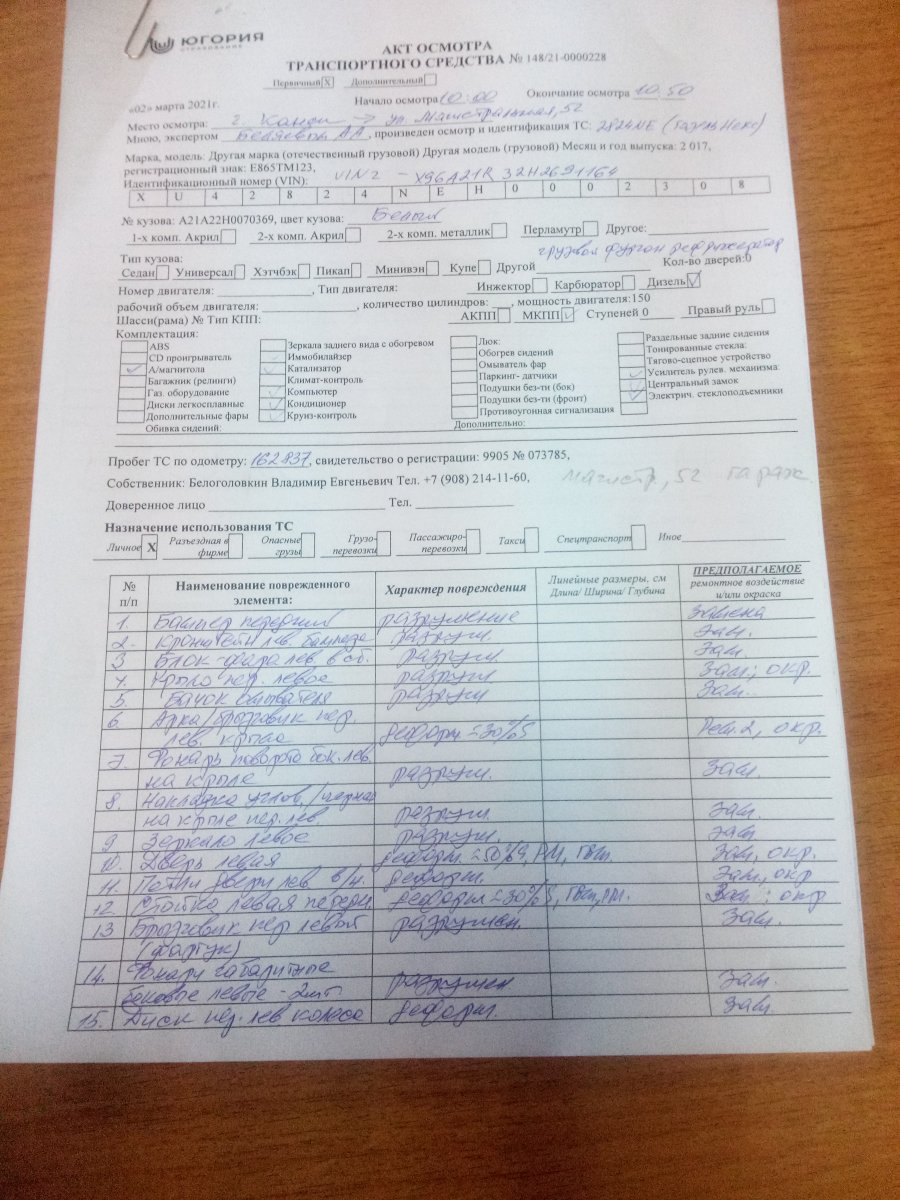 ЮГОРИЯ
СТРАХОВАНИЕ
АКТ ОСМОТРА
ТРАНСПОРТНОГО СРЕДСТВА № 148/21-0000228
Первичный X Дополнительный
«02» марта 2021г. Начало осмотра 10:00 Окончание осмотра 10.50
Место осмотра: г. Канск ул. Магистральная, 52
Мною, экспертом А.А., произведен осмотр и идентификация ТС: 2824NE (Газель Некс)
Марка, модель: Другая марка (отечественный грузовой) Другая модель (грузовой) Месяц и год выпуска: 2 017,
регистрационный знак: Е865ТМ123,
Идентификационный номер (VIN): VIN2 - X96A21R32H2691164
X U 4 2 8 2 4 N E H 0 0 0 2 3 0 8
№ кузова: A21A22H0070369, цвет кузова: Белый
1-х комп. Акрил 2-х комп. Акрил 2-х комп. металлик Перламутр Другое:
Тип кузова: грузовой фургон рефрижератор
Седан Универсал Хэтчбэк Пикап Минивэн Купе Другой Кол-во дверей:0
Номер двигателя: , Тип двигателя: Инжектор Карбюратор Дизель
рабочий объем двигателя: , количество цилиндров: , мощность двигателя:150
Шасси(рама) № Тип КПП: АКПП МКПП Ступеней 0 Правый руль
Комплектация:
ABS Зеркала заднего вида с обогревом Люк: Раздельные задние сидения
CD проигрыватель Иммобилайзер Обогрев сидений Тонированные стекла:
А/магнитола Катализатор Омыватель фар Тягово-сцепное устройство
Багажник (релинги) Климат-контроль Паркинг- датчики Усилитель рулев. механизма:
Газ. оборудование Компьютер Подушки без-ти (бок) Центральный замок
Диски легкосплавные Кондиционер Подушки без-ти (фронт) Электрич. стеклоподъемники
Дополнительные фары Круиз-контроль Противоугонная сигнализация
Обивка сидений: Дополнительно:
Пробег ТС по одометру: 162837, свидетельство о регистрации: 9905 № 073785,
Собственник: Белоголовкин Владимир Евгеньевич Тел. +7 (908) 214-11-60, Магистр, 52 гараж
Доверенное лицо Тел.
Назначение использования ТС
Личное X Разъездная в фирме Опасные грузы Грузо-перевозки Пассажиро-перевозки Такси Спецтранспорт Иное
№ п/п Наименование поврежденного элемента: Характер повреждения Линейные размеры, см Длина/ Ширина/ Глубина ПРЕДПОЛАГАЕМОЕ ремонтное воздействие и/или окраска
1. Бампер передний разрушение Замена
2. Кронштейн лев. бампера разруш. Зам.
3 Блок-фара лев. в сб. разруш. Зам.
4. Крыло пер. левое разруш Зам; окр.
5. Бачок омывателя разруш Зам.
6 Арка/брызговик пер.
лев. крыла деформ ≈30%S Рем.2, окр.
7. Фонарь поворота бок. лев.
на крыле разруш. Зам.
8. Накладка углов./черная
на крыле пер. лев разруш. Зам.
9 Зеркало левое разруш. Зам
10. Дверь левая деформ. ≈50%S, РМ, Зам, окр.
11 Петли двери лев. в/н. деформ. Зам, окр
12. Стойка левая передн. деформ ≈30%S, РМ. Зам; окр
13 Брызговик пер левый разрушен. Зам.
(фартук)
14. Фонари габаритные
боковые левые - 2шт разрушен Зам.
15. Диск пер. лев колеса деформ. Зам.